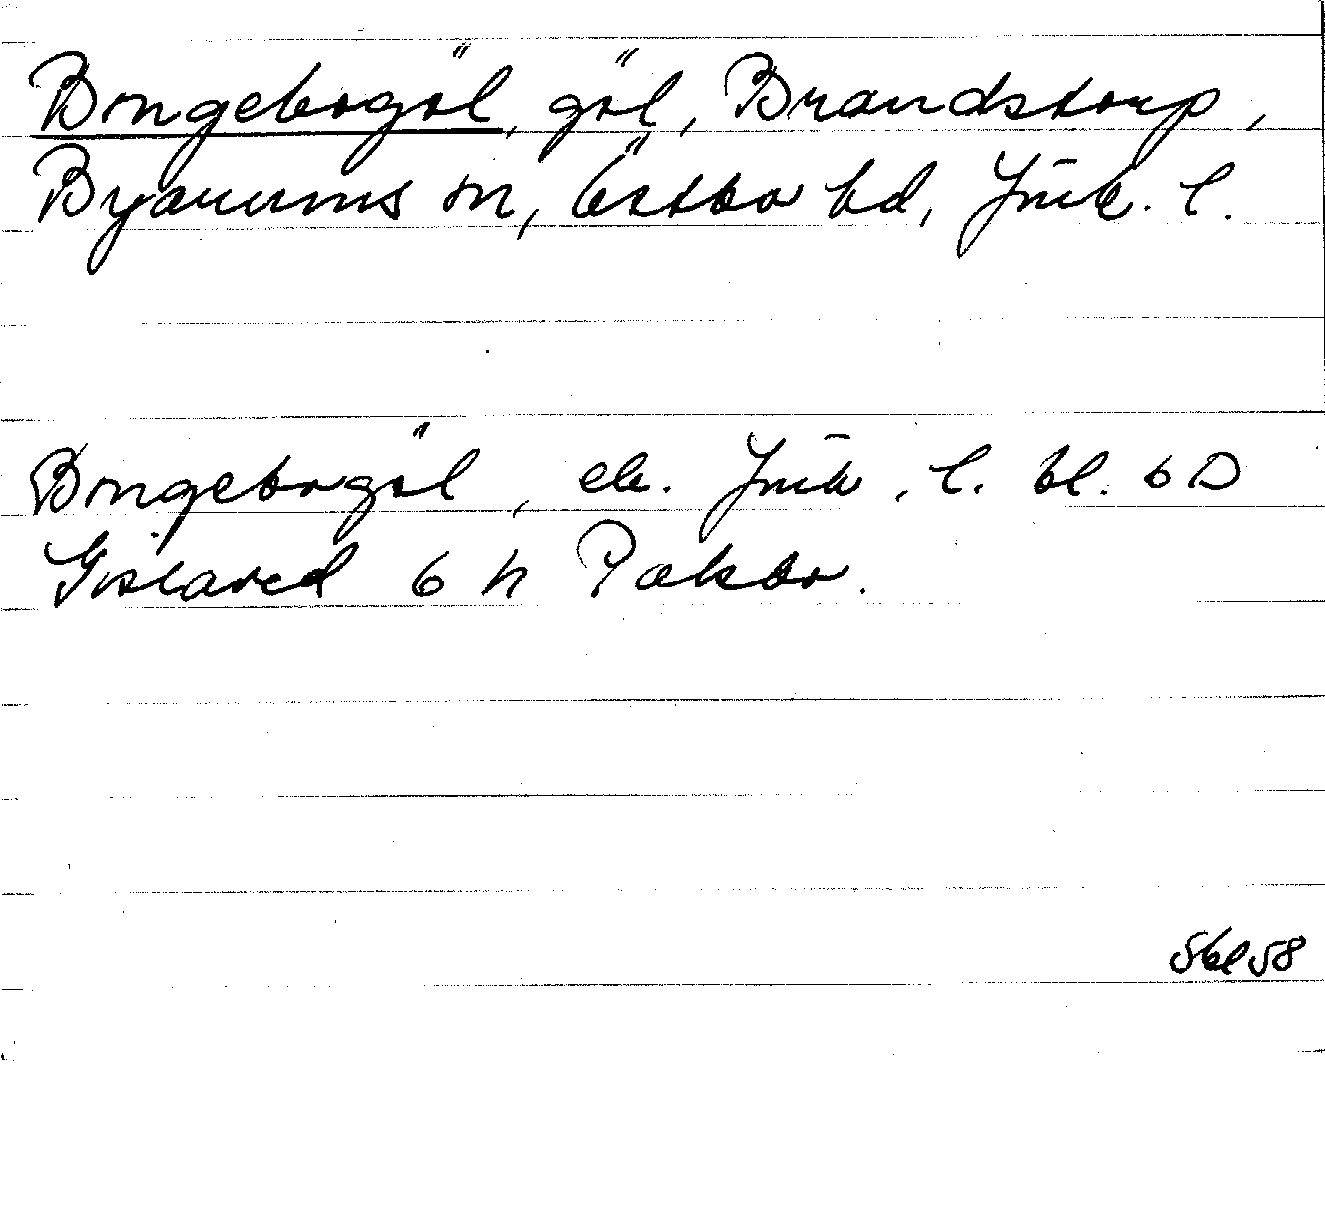 Bongebogöl, göl, Brandstorp,
Byarums sn, Östbo hd, Jönk. l.
Bongebogöl, ek. Jönk. l. bl. 6 D
Gislaved 6 h Pålsbo.